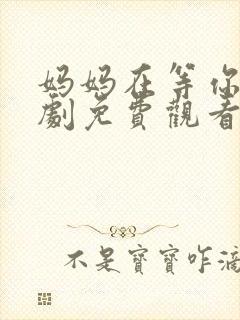 妈妈在等你
劇免費觀看
不是寶寶咋滴